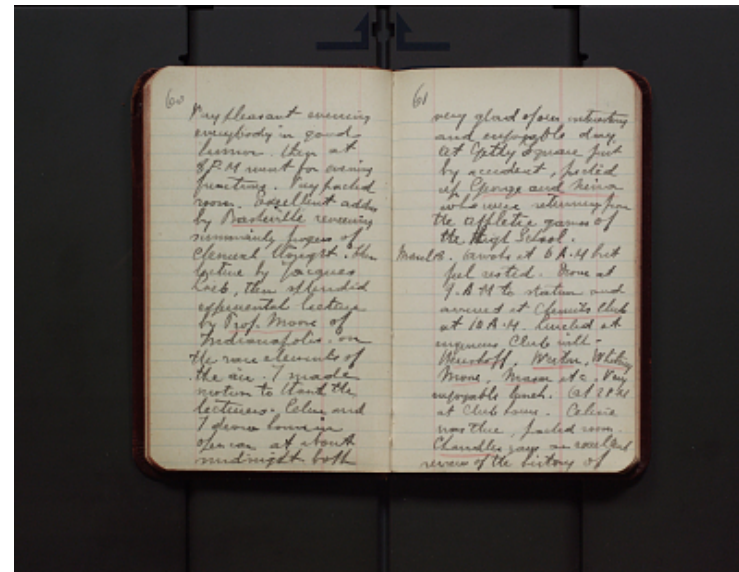 60
Very pleasant evening
everybody in good
humor. then at
8 P.M went for evening
functions. Very packed
room. Excellent address
by Baskerville reviewing
summarily progress of
Chemical thought. then
lecture by Jacques
Loeb, then splendid
experimental lecture
by Prof. Moore of
Indianapolis. on
the rare elements of
the air. I made
motion to thank the
lecturers. Celine and
I drove home in
open car at about
midnight both
61
very glad of our interesting
and enjoyable day.
at Getty Square just
by accident, picked
up George and Nina
who were returning from
the athletic games of
the High School.
March 8. Awoke at 6 A.M but
feel rested. Drove at
9. A M to station and
arrived at Chemists Club
at 10 A.M. lunched at
engineers Club with
Weston, Whitney
Moore, Mason etc. Very
enjoyable lunch. at 2 P.M.
at Club house. Celine
was there, packed room.
Chandler gave an excellent
review of the history of